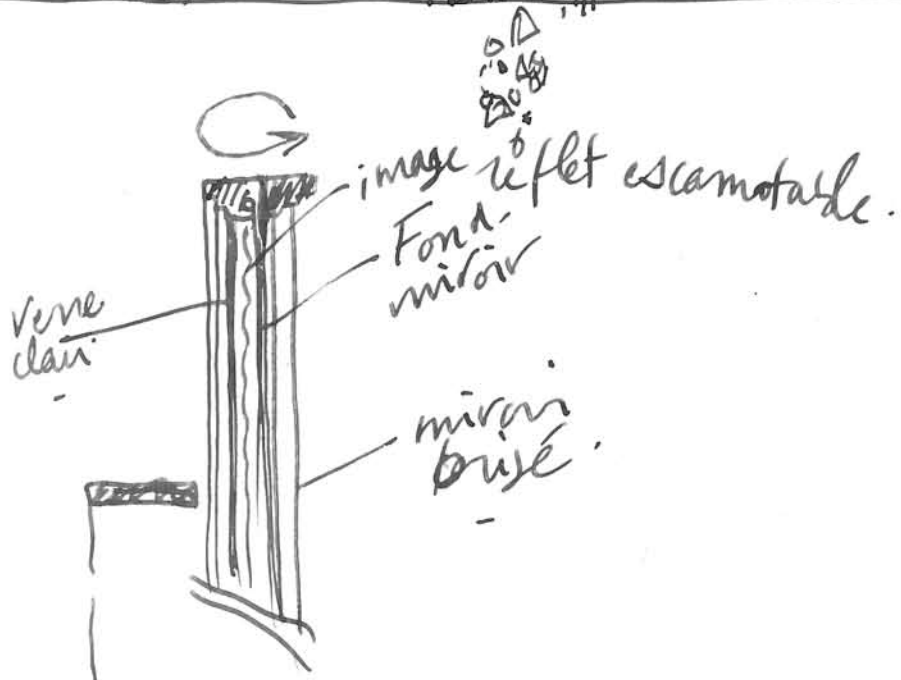 image reflet escamotable.
Fond-
miroir
Verre
clair
miroir
brisé.